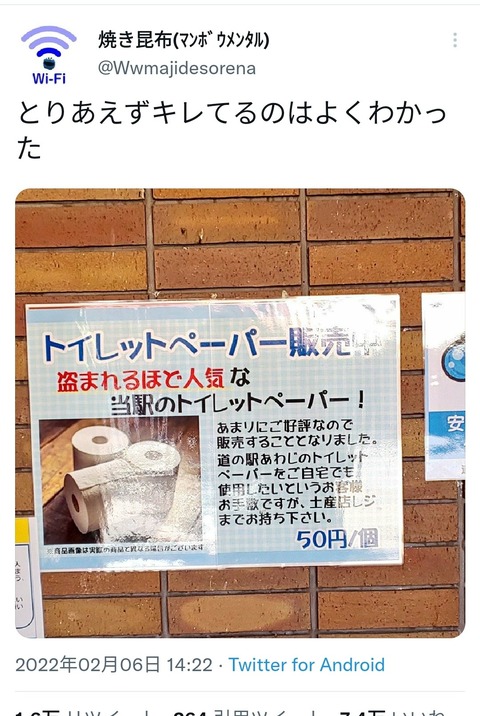 焼き昆布(ﾏﾝﾎﾞｳﾒﾝﾀﾙ)
Wi-Fi
@Wwmajidesorena
とりあえずキレてるのはよくわかっ
た
トイレットペーパー販売中
盗まれるほど人気な
当駅のトイレットペーパー！
あまりにご好評なので
販売することとなりました。
道の駅あわじのトイレット
ペーパーをご自宅でも
使用したいというお客様、
お手数ですが、土産店レジ
までお持ち下さい。
※商品画像は実際の商品と異なる場合がございます
50円/個
安
2022年02月06日 14:22 · Twitter for Android